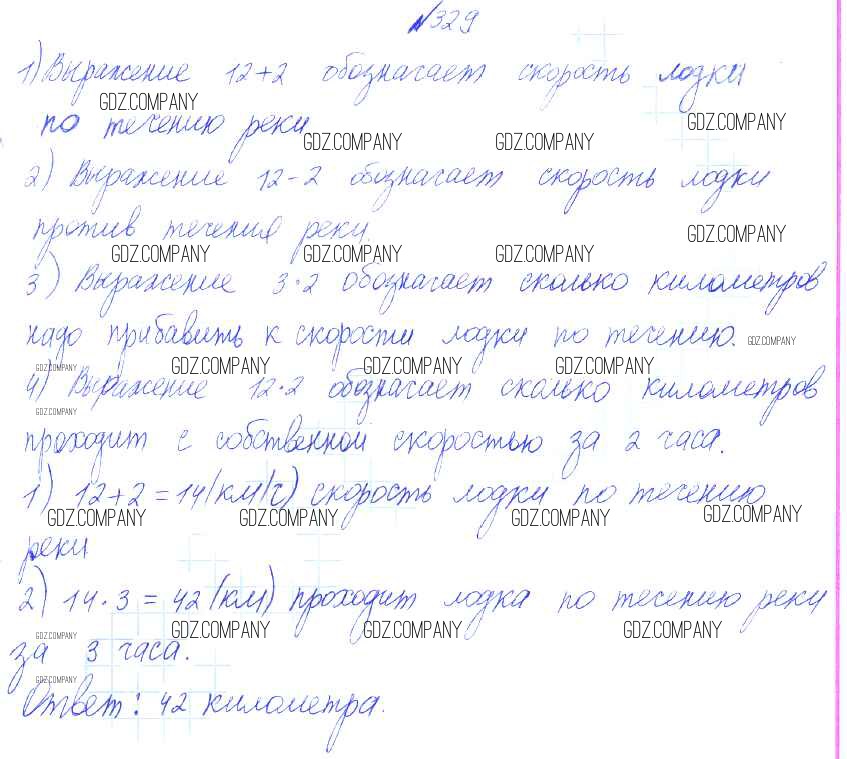 №329
1) Выражение 12+2 обозначает скорость лодки
GDZ.COMPANY GDZ.COMPANY
по течению реки
GDZ.COMPANY GDZ.COMPANY
2) Выражение 12-2 обозначает скорость лодки
против течения реки.
GDZ.COMPANY
GDZ.COMPANY GDZ.COMPANY GDZ.COMPANY
3) Выражение 3·2 обозначает сколько километров
надо прибавить к скорости лодки по течению.
GDZ.COMPANY
GDZ.COMPANY GDZ.COMPANY GDZ.COMPANY GDZ.COMPANY
4) Выражение 12·2 обозначает сколько километров
GDZ.COMPANY
проходит с собственной скоростью за 2 часа.
1) 12+2=14(км/ч) скорость лодки по течению
GDZ.COMPANY GDZ.COMPANY GDZ.COMPANY GDZ.COMPANY
реки
2) 14·3=42(км) проходит лодка по течению реки
GDZ.COMPANY GDZ.COMPANY GDZ.COMPANY GDZ.COMPANY
за 3 часа.
GDZ.COMPANY
Ответ: 42 километра.